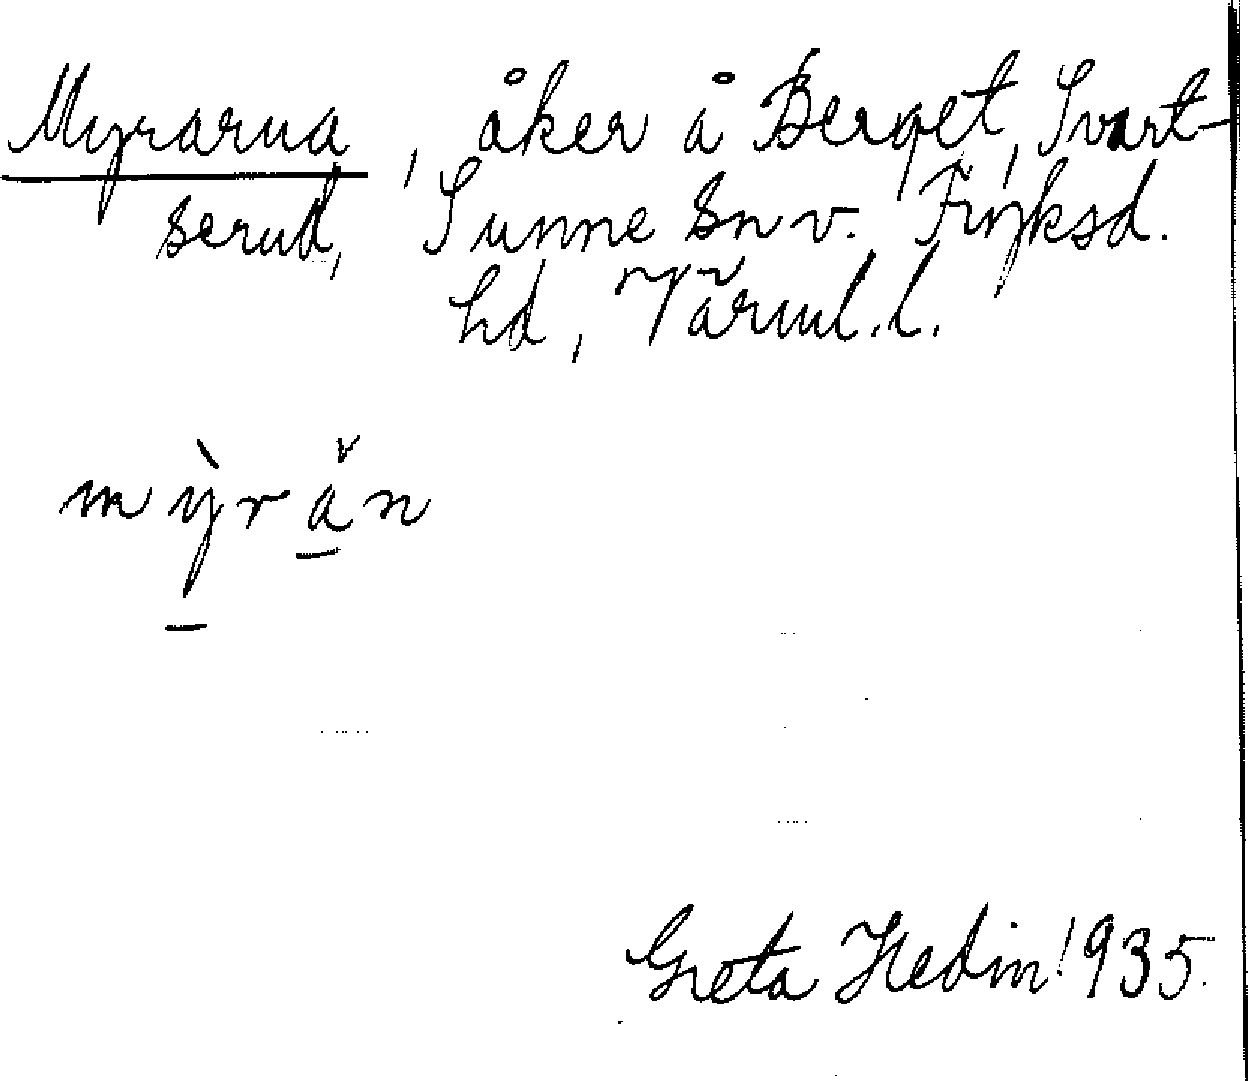 Myrarna, åker å Berget, Svart-
serud, Sunne sn v. Fryksd.
hd, Värml.l.
mỳ̠rǎ̠n
Greta Hedin 1935.